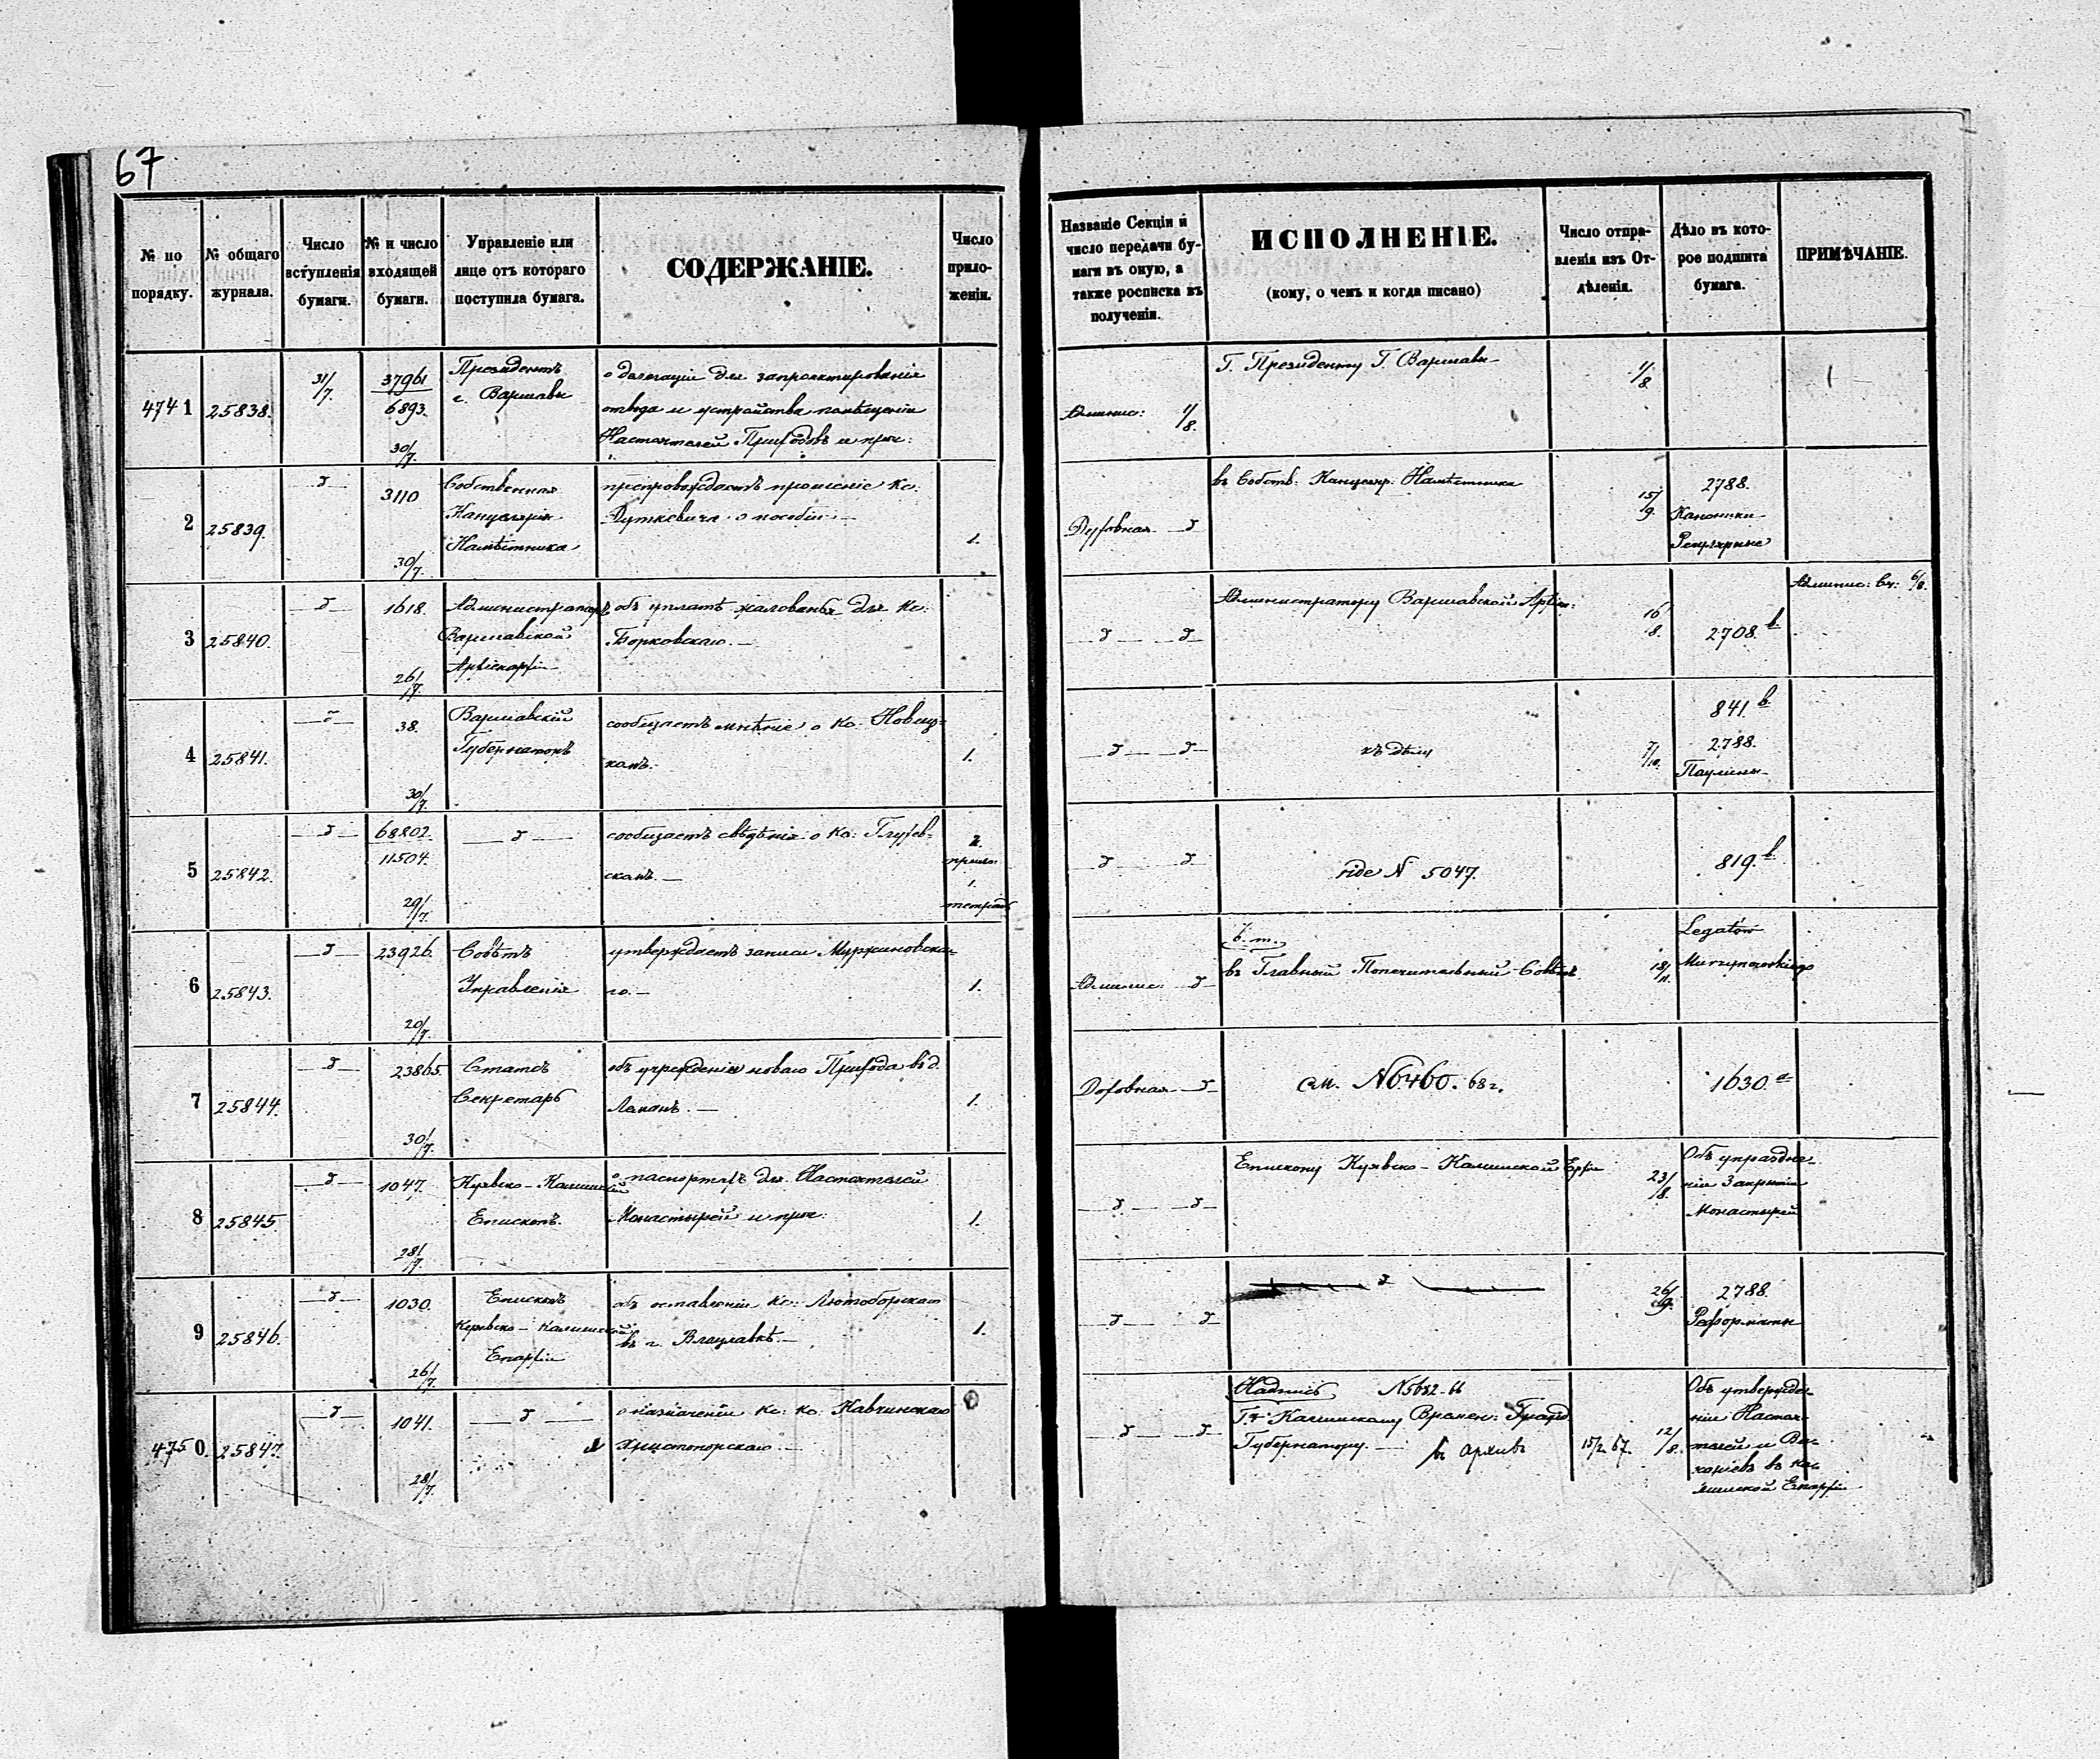 67
№ по порядку.
№ общаго журнала.
Число вступленія бумаги.
№ и число входящей бумаги.
Управленіе или лице отъ котораго поступила бумага.
СОДЕРЖАНІЕ.
Число приложеніи.
Названіе Секціи и число передачи бумаги въ оную, а также росписка въ полученіи.
ИСПОЛНЕНІЕ.
(кому, о чемъ и когда писано)
Число отправленія изъ Отдѣленія.
Дѣло въ которое подшита бумага.
ПРИМѢЧАНІЕ.
4741 25838. 31/7. 37961
6893. 30/7.
Президентъ
г. Варшавы
о делегаціи для запроектированія
отвода и устройства помѣщеніи
Настоятелей Приходовъ и проч:
Админис: 1/8.
Г. Президенту Г. Варшавы
1/8.
2 25839. д 3110 30/7.
Собственная
Канцелярія
Намѣстника
препровождаетъ прошеніе Кс:
Руткевича о пособіи.—
1.
Духовная д
въ Собств: Канцеляр. Намѣстника
15/9.
2788.
Каноники
Регулярные
3 25840. д 1618. 26/7.
Администраторъ
Варшавской
Архіепархіи
объ уплатѣ жалованья для Кс:
Борковскаго.—
д д
Администратору Варшавской Архіеп:
16/8.
2708. b.
Админис: Сч: 6/8.
4 25841. д 38. 30/7.
Варшавскій
Губернаторъ
сообщаетъ мнѣніе о Кс: Новиц-
комъ.
1.
д д
къ дѣлу
7/10.
841. b.
2788.
Паулины
5 25842. д 68802.
11504. 29/7.
д
сообщаетъ свѣдѣнія о Кс: Глухов-
скомъ.—
2.
1.
тетрадь
д д
vide N 5047.
819. b.
6 25843. д 23926. 20/7.
Совѣтъ
Управленія
утверждаетъ записи Муржиновска-
го.—
1.
Админис: д
въ Главный Попечительный Совѣтъ
18/11.
Legatów
Murzynowskiego
7 25844. д 23865. 30/7.
Статсъ
Секретарь
объ учрежденіи новаго Прихода въ д.
1.
Духовная д
см. N 6460. 68 г.
1630 a
8 25845. д 1047. 28/7.
Куявско-Калишскій
Епископъ.
о паспортахъ для Настоятелей
Монастырей и проч:
1.
д д
Епископу Куявско-Калишской Ерхіи
23/8.
Объ упраздне-
ніи Закрытіи
Монастырей
9 25846. д 1030. 26/7.
Епископъ
Куявско-Калишской
Епархіи
объ оставленіи Кс: Лютоборскаго
въ г. Влоцлавкѣ.—
1.
д д
д
26/9.
2788.
Реформаты
4750. 25847. д 1041. 28/7.
д
о назначеніи Кс: Кс: Кавчинскаго
и Хржстопорскаго.—
д д
Надпись N 5632-66
Гг. Калишскому Времен: Гражд.
Губернатору.— въ архивъ
15/2 67. 12/8.
Объ утвержде-
ніи Настоя-
телей и Ви-
каріевъ въ Ка-
лишской Епархіи